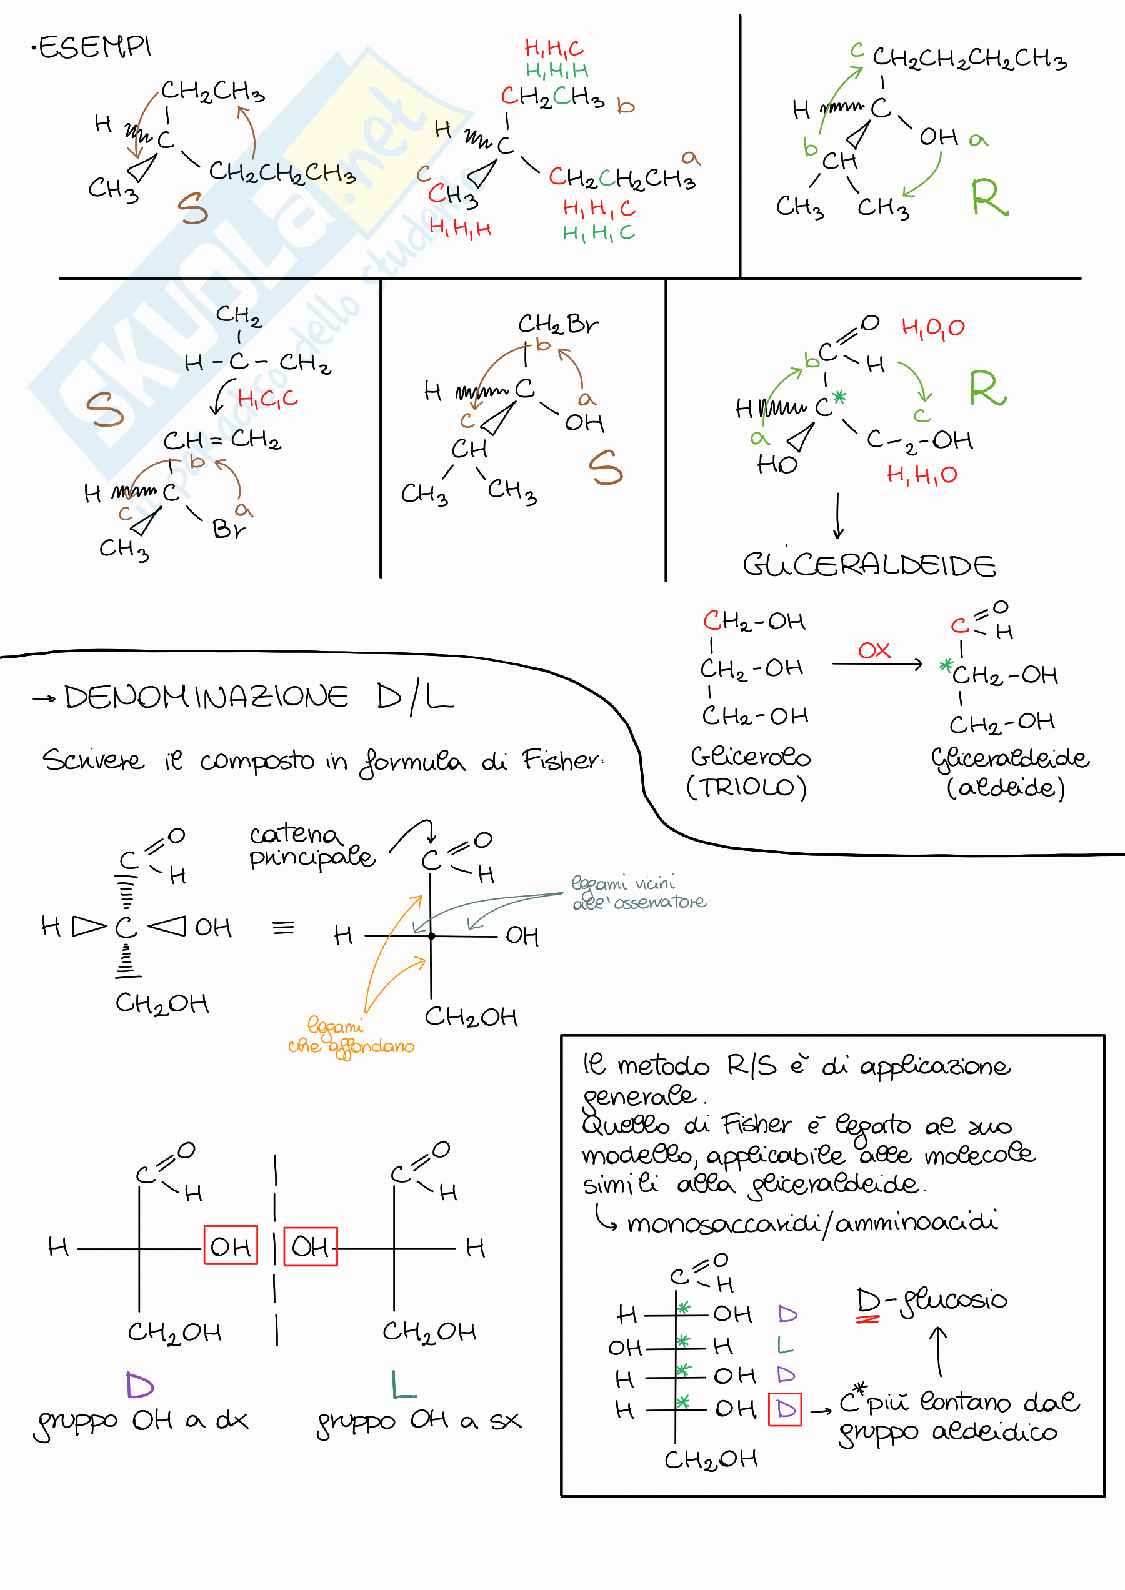 ·ESEMPI
CH2CH3
H
C
CH3
CH2CH2CH3
S
H,H,C
H,H,H
CH2CH3 b
H
C
c
CH3
H,H,H
a
CH2CH2CH3
H,H,C
H,H,C
c CH2CH2CH2CH3
H
C
OH a
b
CH
CH3
CH3
R
CH2
H-C-CH2
H,C,C
S
CH=CH2
b
H
C
c
a
Br
CH3
CH2Br
b
H
C
c
a
OH
CH
CH3
CH3
S
O
H,O,O
b C
H
R
H
C*
c
a
HO
C-2-OH
H,H,O
GLICERALDEIDE
CH2-OH
CH2-OH
CH2-OH
Glicerolo
(TRIOLO)
OX
O
C
H
*CH2-OH
CH2-OH
Gliceraldeide
(aldeide)
→ DENOMINAZIONE D/L
Scrivere il composto in formula di Fisher.
O
C
H
H
C
OH
CH2OH
≡
catena
principale
O
C
H
legami vicini
all'osservatore
H
OH
CH2OH
legami
che affondano
O
C
H
H
OH
CH2OH
D
gruppo OH a dx
O
C
H
OH
H
CH2OH
L
gruppo OH a sx
Il metodo R/S è di applicazione
generale.
Quello di Fisher è legato al suo
modello, applicabile alle molecole
simili alla gliceraldeide.
↳ monosaccaridi/amminoacidi
O
C
H
H * OH D
OH * H L
H * OH D
H * OH D → C* più lontano dal
gruppo aldeidico
CH2OH
D-glucosio
SKUOLA.net